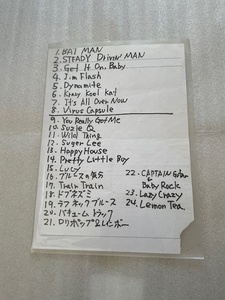 1. BAT MAN
2. STEADY Drivin' MAN
3. Get It On. Baby
4. I'm Flash
5. Dynamite
6. Krazy Kool Kat
7. It's All Over Now
8. Virus Capsule
9. You Really Got Me
10. Suzie Q
11. Wild Thing
12. Suger Lee
13. Happy House
14. Pretty Little Boy
15. Lucy
16. ブルースの気分
17. Train Train
18. ドブネズミ
19. ラフネックブルース
20. バキューム トラック
21. ロリポップ&レーボー
22. CAPTAIN Guitar
& Baby Rock
23. Lazy Crazy
24. Lemon Tea.